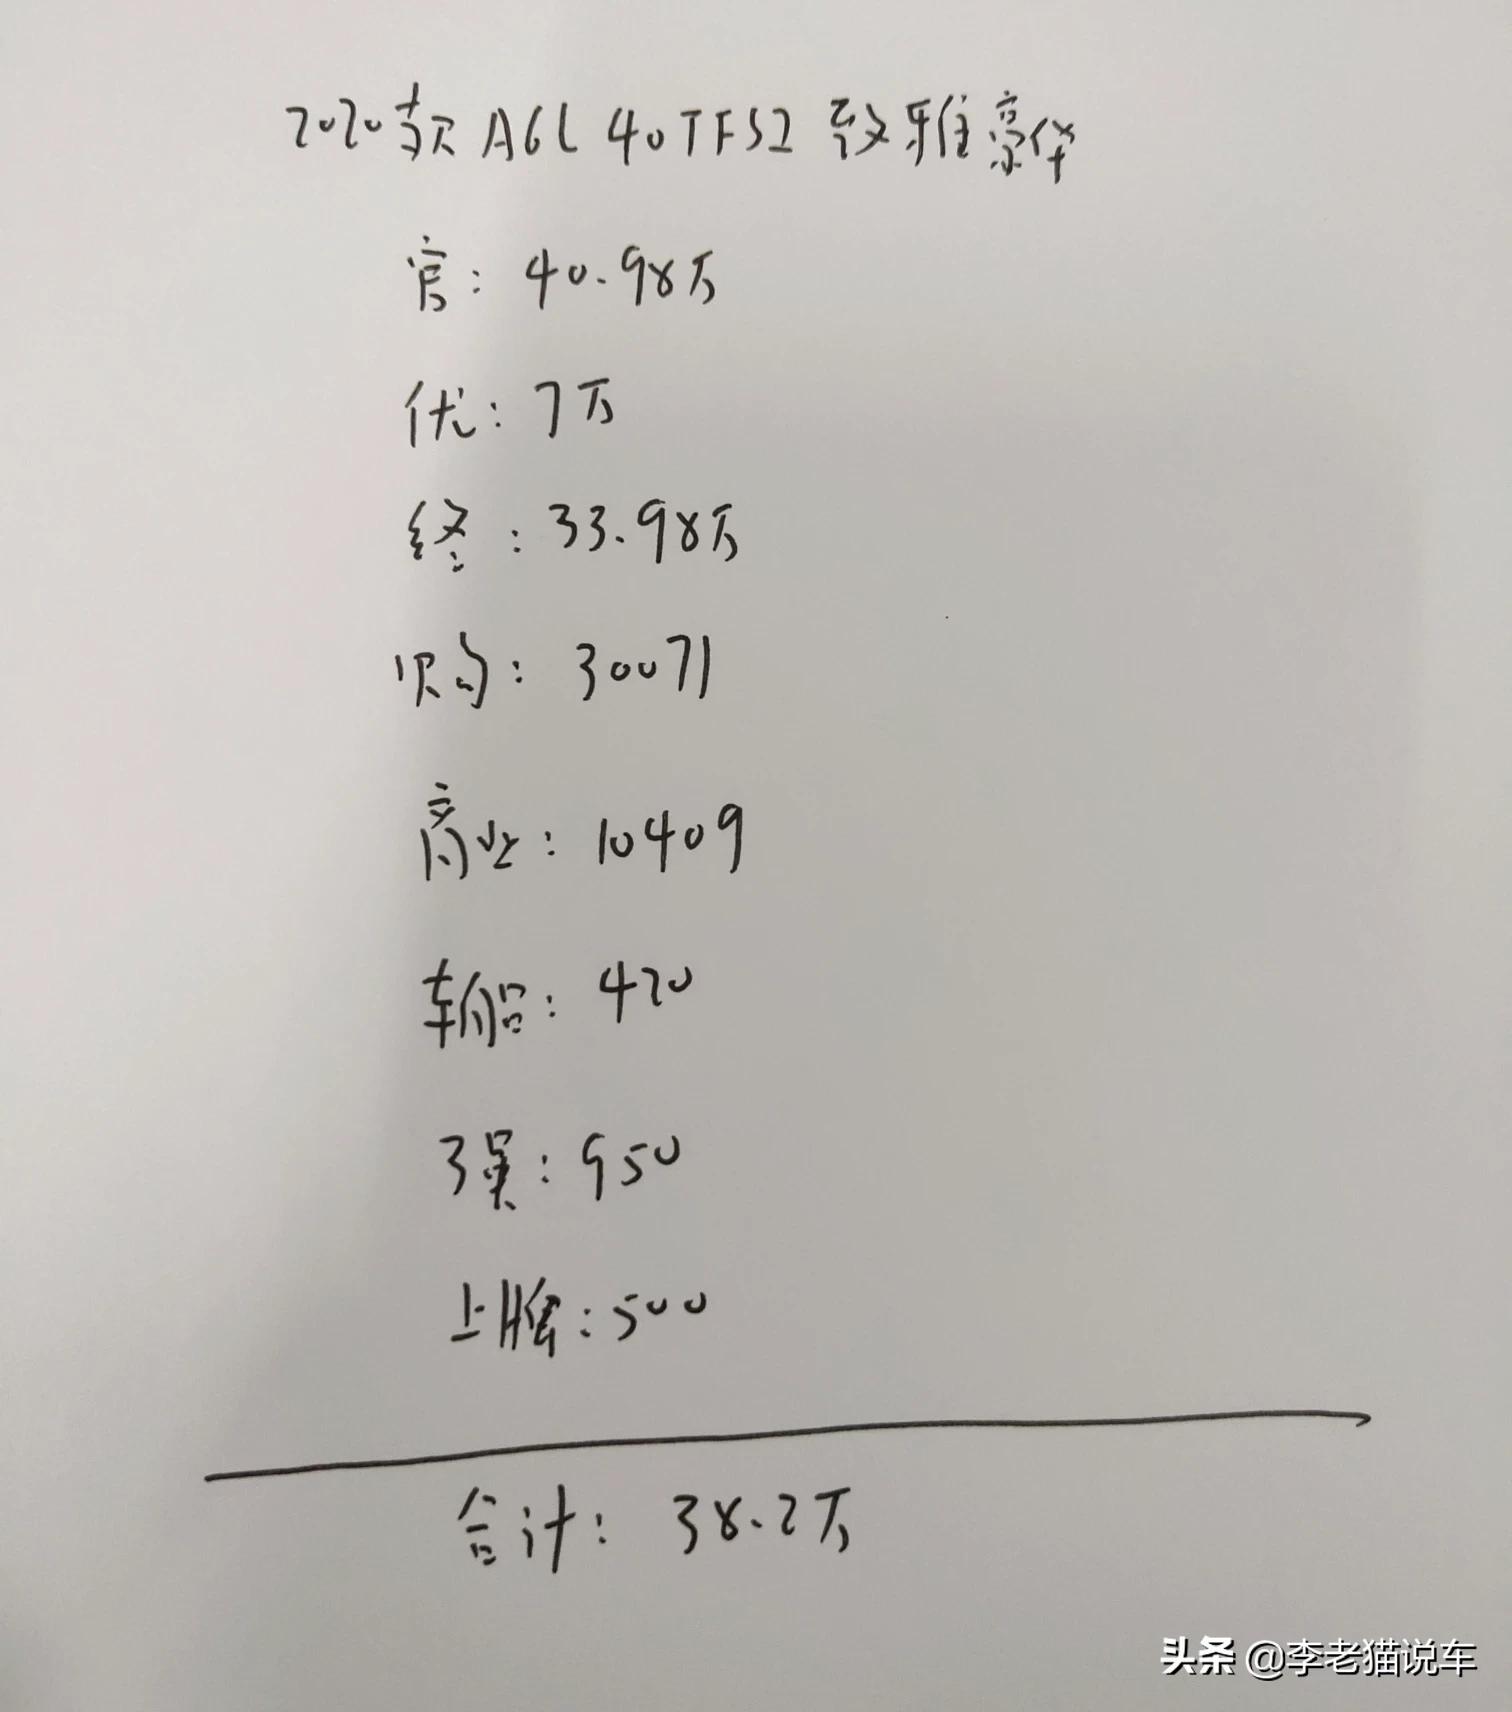 2020款 A6L 40TFSI 致雅豪华
官：40.98万
优：7万
终：33.98万
购：30071
商业：10409
车船：420
强：950
上牌：500
合计：38.2万
头条 @李老猫说车